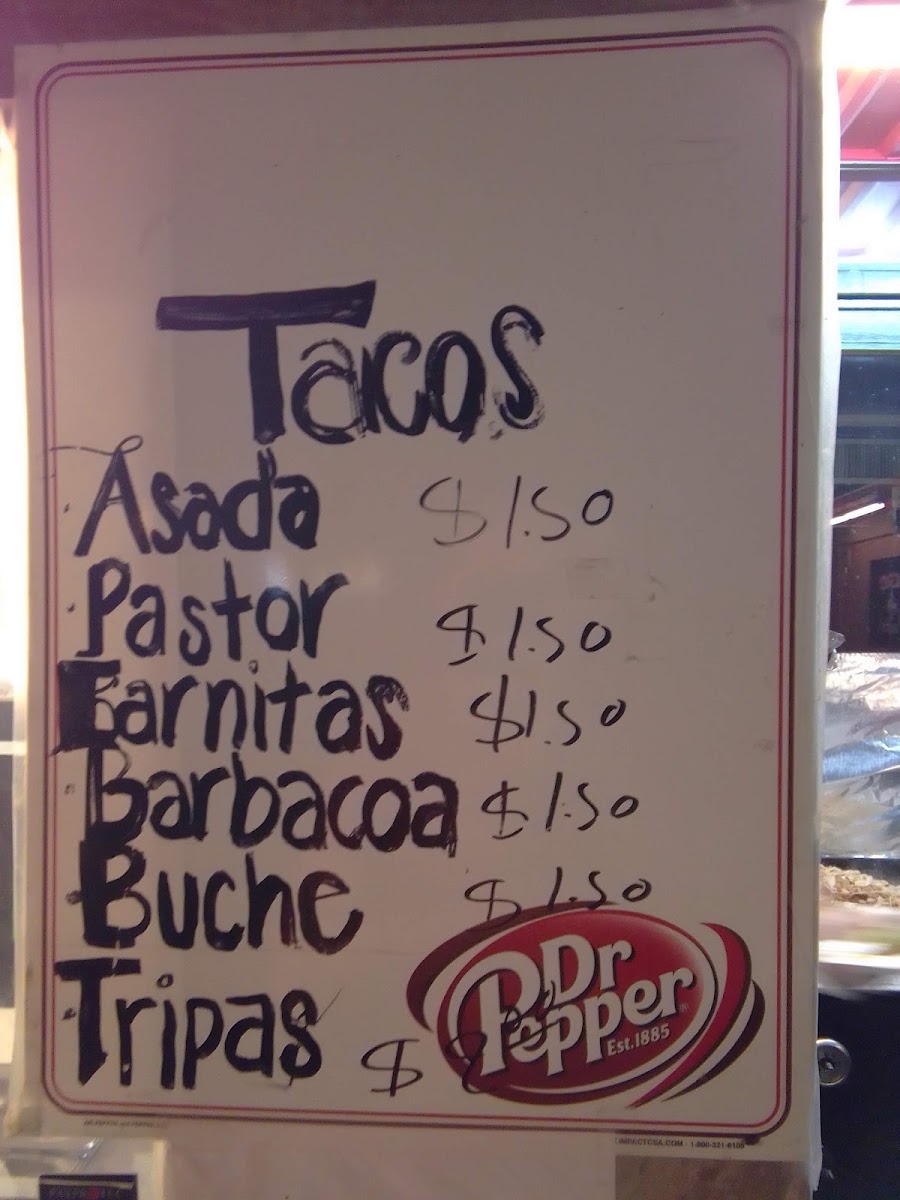 Tacos
Asada $1.50
Pastor $1.50
Carnitas $1.50
Barbacoa $1.50
Buche $1.50
Tripas $
Dr
Pepper
Est.1885
IMPACTCSA.COM - 1-800-321-6105